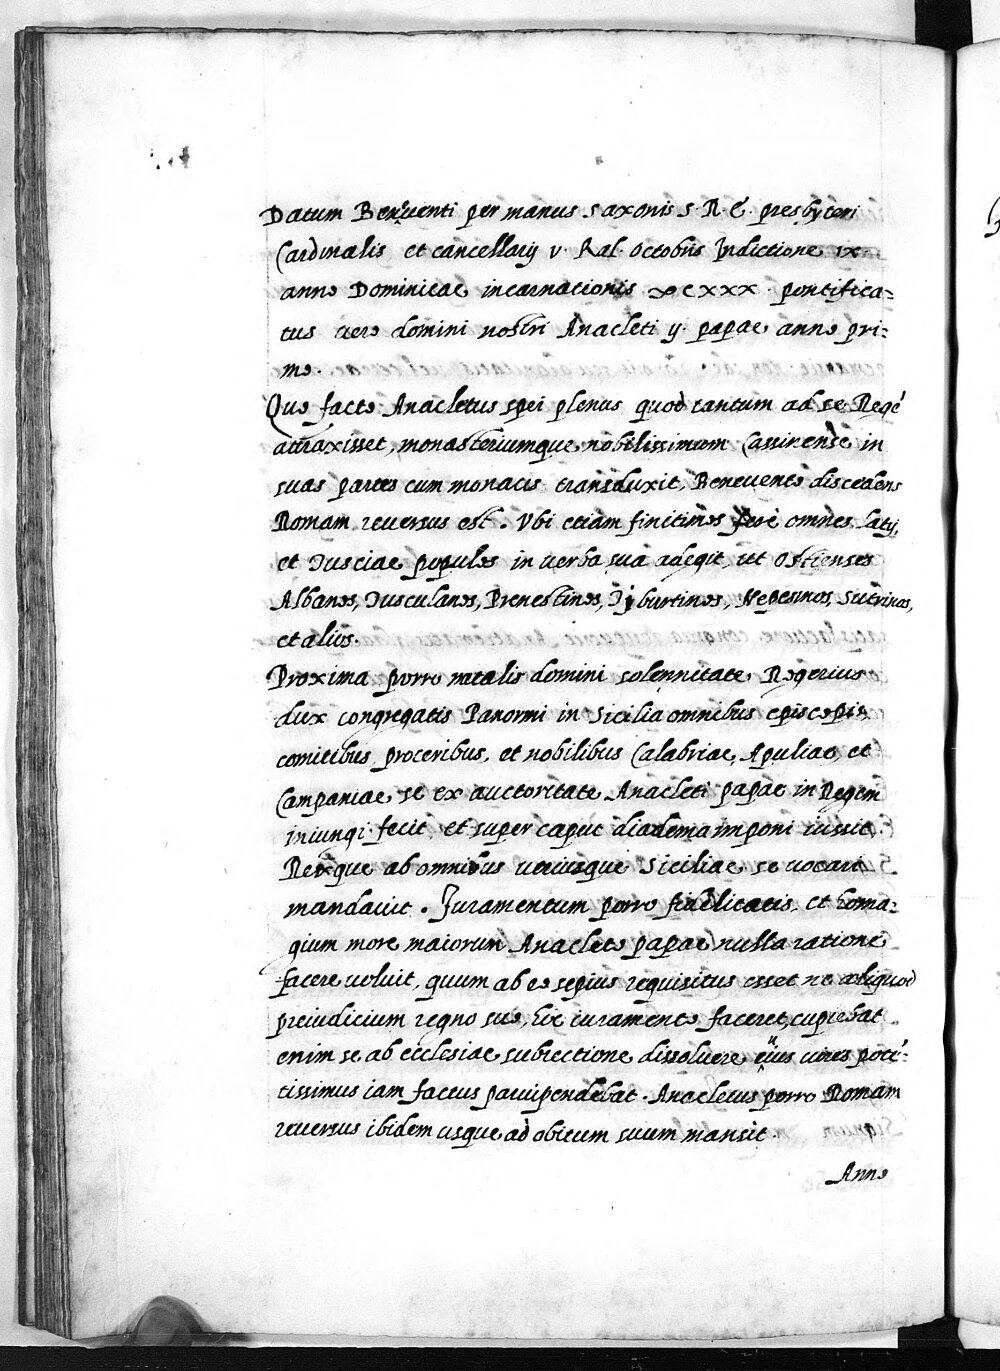 Datum Beneventi per manus Saxonis S. R. E. presbyteri
Cardinalis et cancellarij v. Kal. Octobris Indictione ix
anno Dominicae incarnationis ∞cxxx. pontifica=
tus vero domini nostri Anacleti ij. papae anno pri=
mo.
Quo facto Anacletus spei plenus quod tantum ad se Regé
attraxisset, monasteriumque nobilissimum Cassinense in
suas partes cum monacis transduxit, Benevento discedens
Romam reversus est. Ubi etiam finitimos ferè omnes Latij,
et Tusciae populos in verba sua adegit, ut Ostienses
Albanos, Tusculanos, Prenestinos, Tyburtinos, Nepesinos, Sutrinos,
et alios.
Proxima porro natalis domini solennitate Rogerius
dux congregatis Panormi in Sicilia omnibus episcopis,
comitibus, proceribus, et nobilibus Calabriae, Apuliae, et
Campaniae, se ex auctoritate Anacleti papae in Regem
iniungi fecit, et super caput diadema imponi iussit,
Rexque ab omnibus utriusque Siciliae se vocari
mandavit. Juramentum porro fidelitatis, et homa=
gium more maiorum Anacleto papae nulla ratione
facere voluit, quum ab eo sepius requisitus esset ne aliquod
preiudicium regno suo, hoc iuramento faceret, cupiebat
enim se ab ecclesiae subiectione dissolvere cuius vires poté=
tissimus iam factus parvipendebat. Anacletus porro Romam
reversus ibidem usque ad obitum suum mansit.
Anno